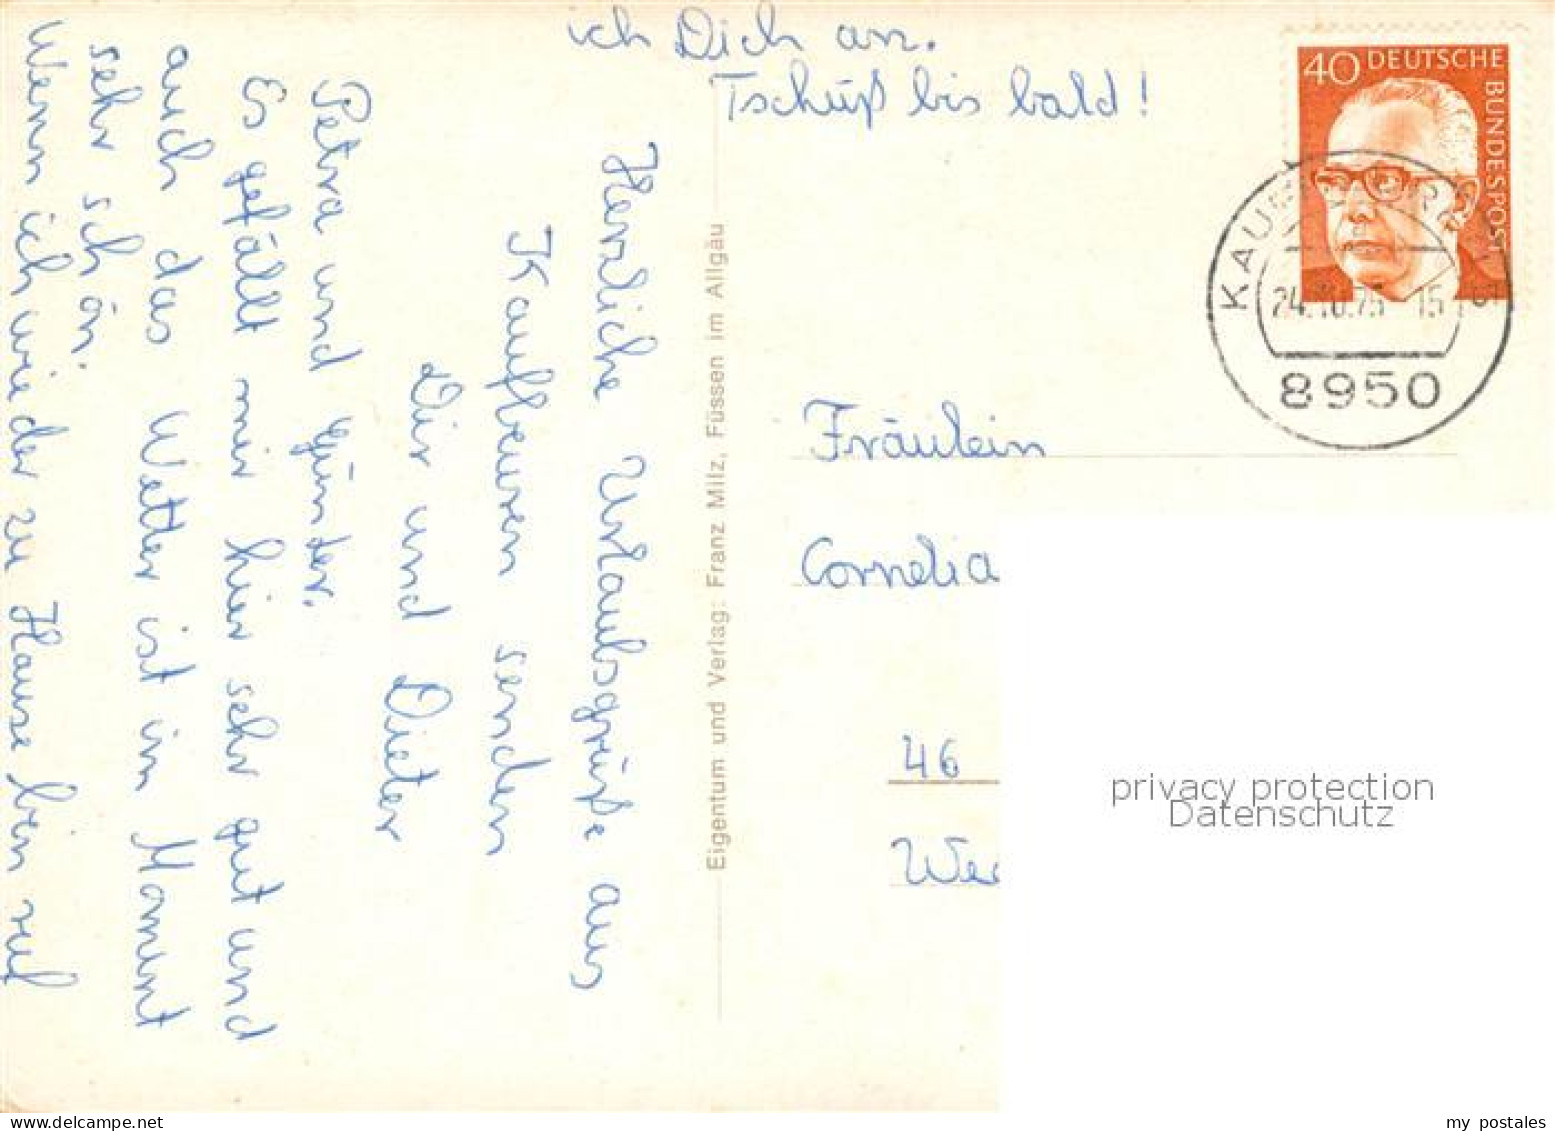 Herzliche Urlaubsgrüße aus
Kaufbeuren senden
Dir und Dieter
Petra und Günter.
Es gefällt mir hier sehr gut und
auch das Wetter ist im Moment
sehr schön.
Wenn ich wieder zu Hause bin ruf
ich Dich an.
Tschüß bis bald!
Eigentum und Verlag: Franz Milz, Füssen im Allgäu
40 DEUTSCHE BUNDESPOST
24.10.75 - 15
8950
Fräulein
Cornelia
46
privacy protection
Datenschutz
my postales